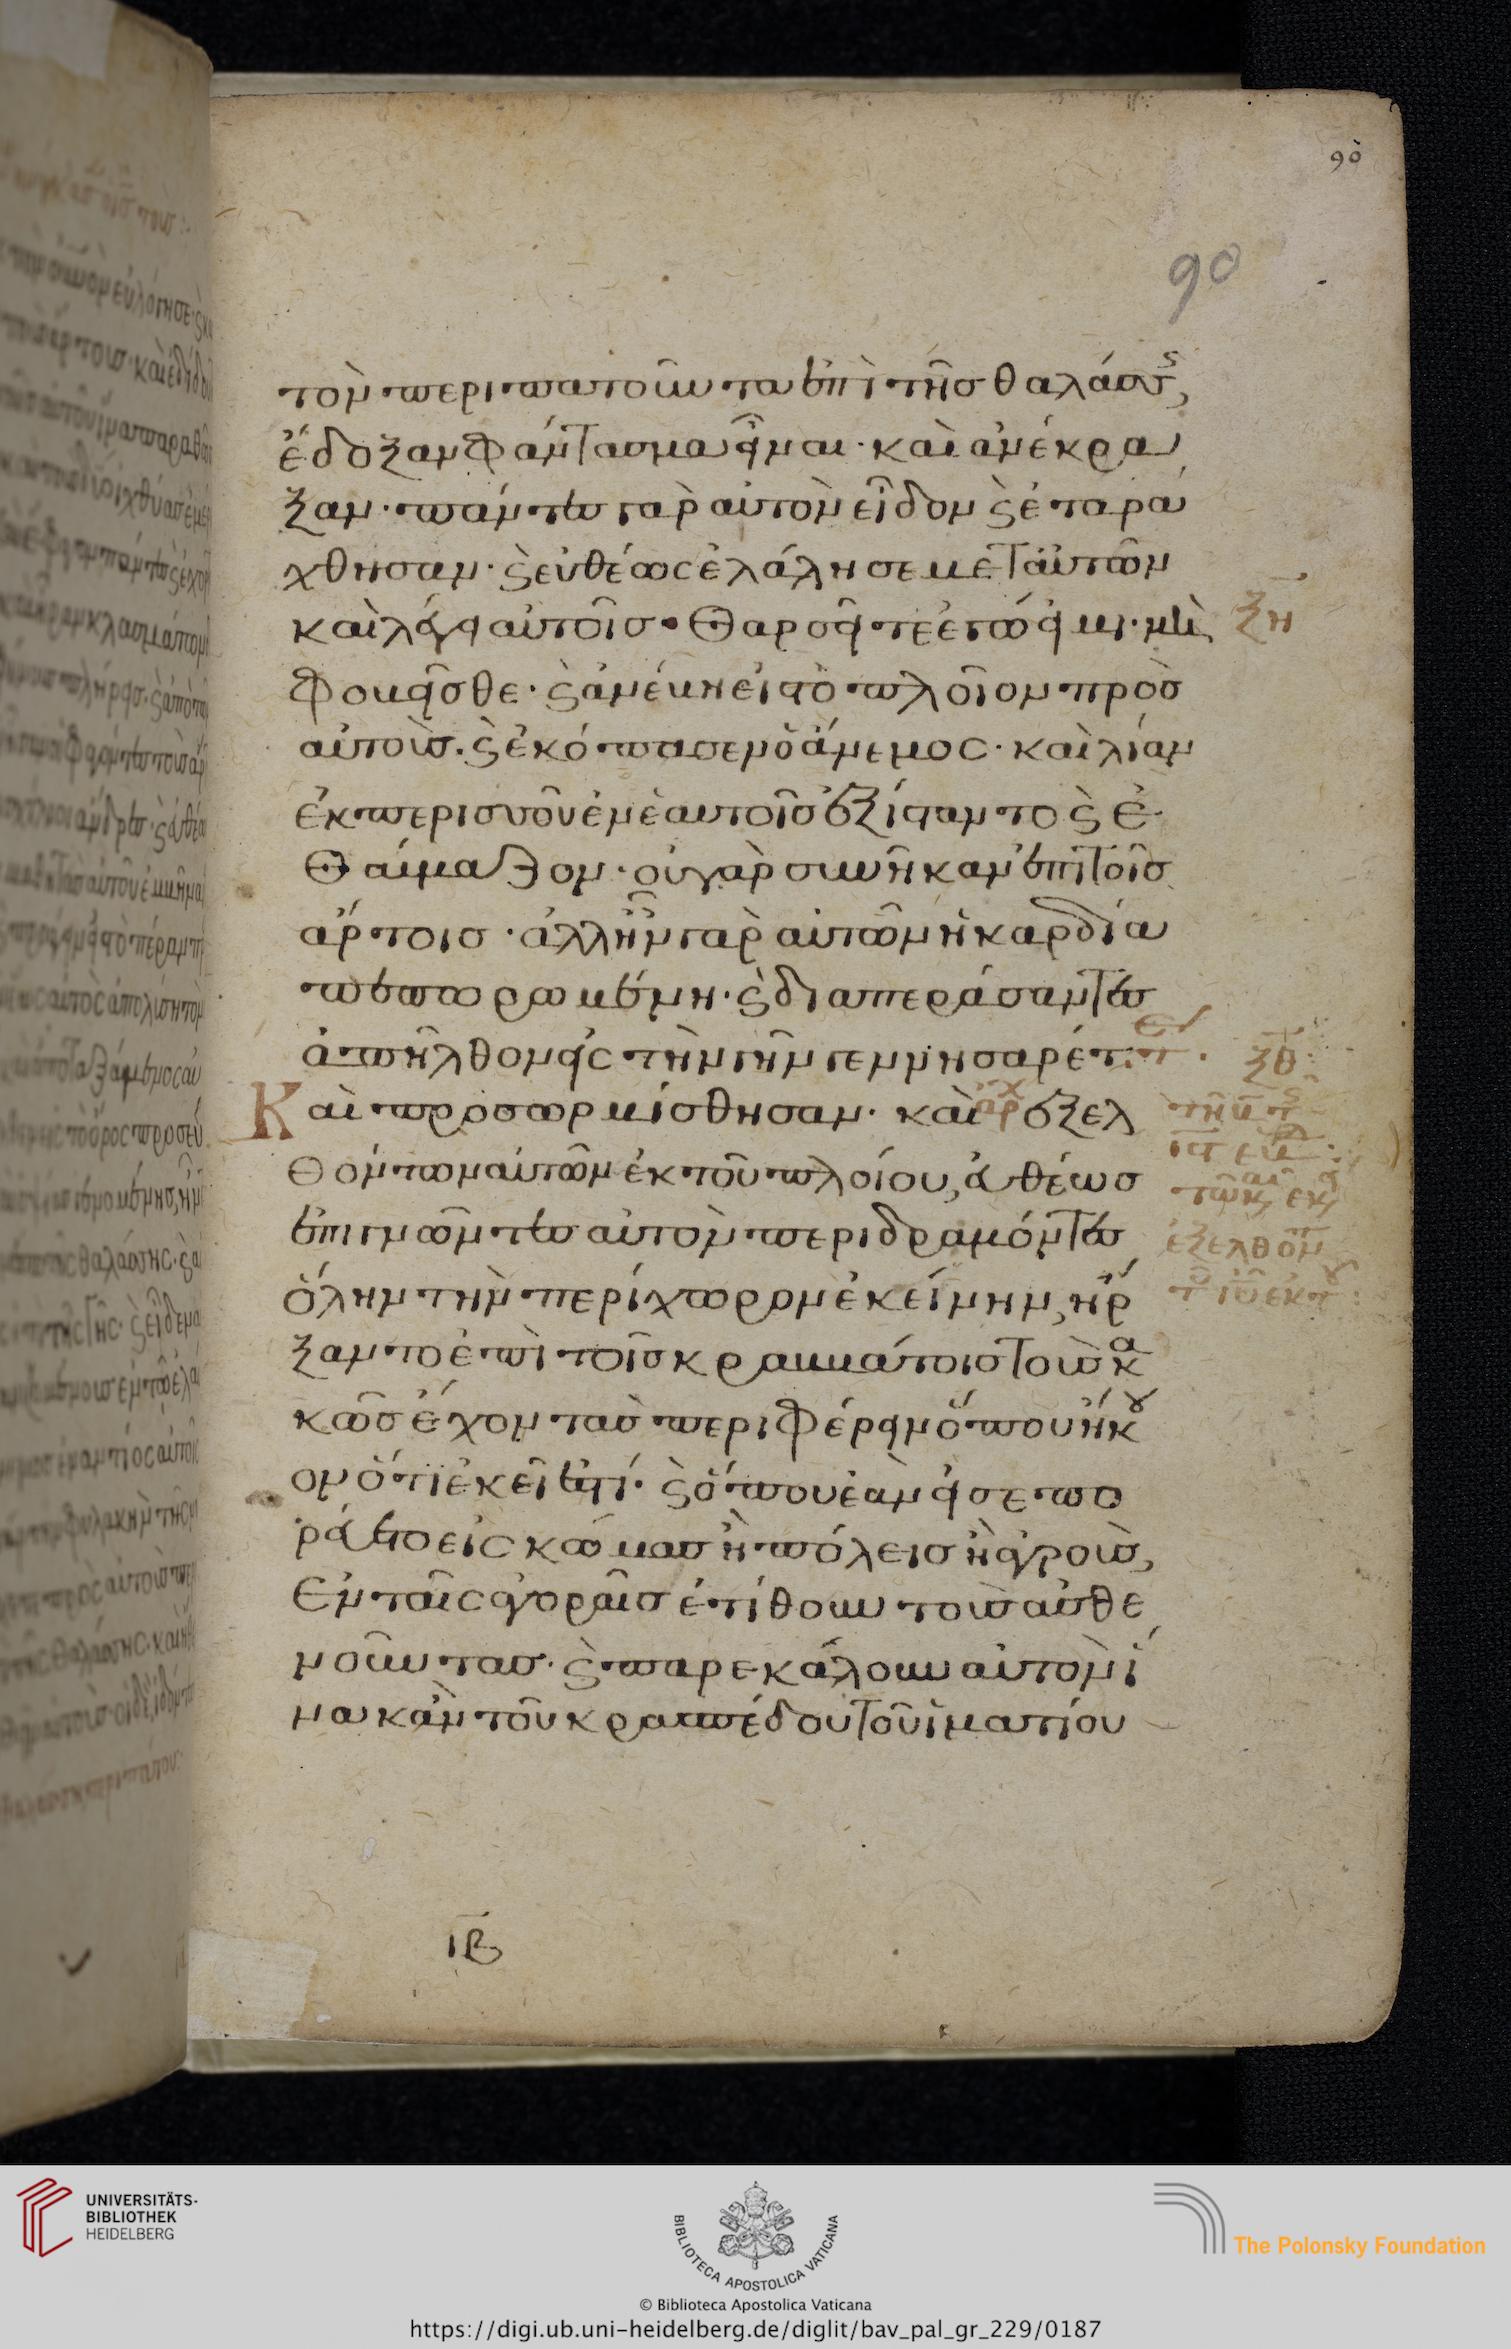 90
90
τὸν περιπατοῦντα ἐπὶ τῆς θαλάσσης,
ἔδοξαν φάντασμα εἶναι· καὶ ἀνέκρα
ξαν· πάντες γὰρ αὐτὸν εἶδον ϗ ἐταρά
χθησαν· ϗ εὐθέως ἐλάλησε μετ αὐτῶν
καὶ λέγει αὐτοῖς· Θαρσεῖτε ἐγώ εἰμι· μὴ
φοβεῖσθε· ϗ ἀνέβη εἰς τὸ πλοῖον πρὸς
αὐτοὺς· ϗ ἐκόπασεν ὁ ἄνεμος· καὶ λίαν
ἐκπερισσοῦ ἐν ἑαυτοῖς ἐξίσταντο ϗ ἐ
θαύμαζον· οὐ γὰρ συνῆκαν ἐπὶ τοῖς
ἄρτοις· ἀλλ ἦν γὰρ αὐτῶν ἡ καρδία
πεπωρωμένη· ϗ διαπεράσαντες
ἀπῆλθον εἰς τὴν γῆν γεννησαρέτ·
Καὶ προσωρμίσθησαν· καὶ ἐξελ
θόντων αὐτῶν ἐκ τοῦ πλοίου, εὐθέως
ἐπιγνῶντες αὐτὸν περιδραμόντες
ὅλην τὴν περίχωρον ἐκείνην, ἤρ
ξαντο ἐπὶ τοῖς κραββάτοις τοὺς κα
κῶς ἔχοντας περιφέρειν ὅπου ἤκου
ον ὅτι ἐκεῖ ἐστί· ϗ ὅπου ἐὰν εἰσεπο
ρεύετο εἰς κώμας ἢ πόλεις ἢ ἀγροὺς,
Ἐν ταῖς ἀγοραῖς ἐτίθουν τοὺς ἀσθε
νοῦντας· ϗ παρεκάλουν αὐτὸν ἵ
να κἂν τοῦ κρασπέδου τοῦ ἱματίου
ξη
ξθ
ιβ
UNIVERSITÄTS-
BIBLIOTHEK
HEIDELBERG
BIBLIOTECA APOSTOLICA VATICANA
The Polonsky Foundation
© Biblioteca Apostolica Vaticana
https://digi.ub.uni-heidelberg.de/diglit/bav_pal_gr_229/0187